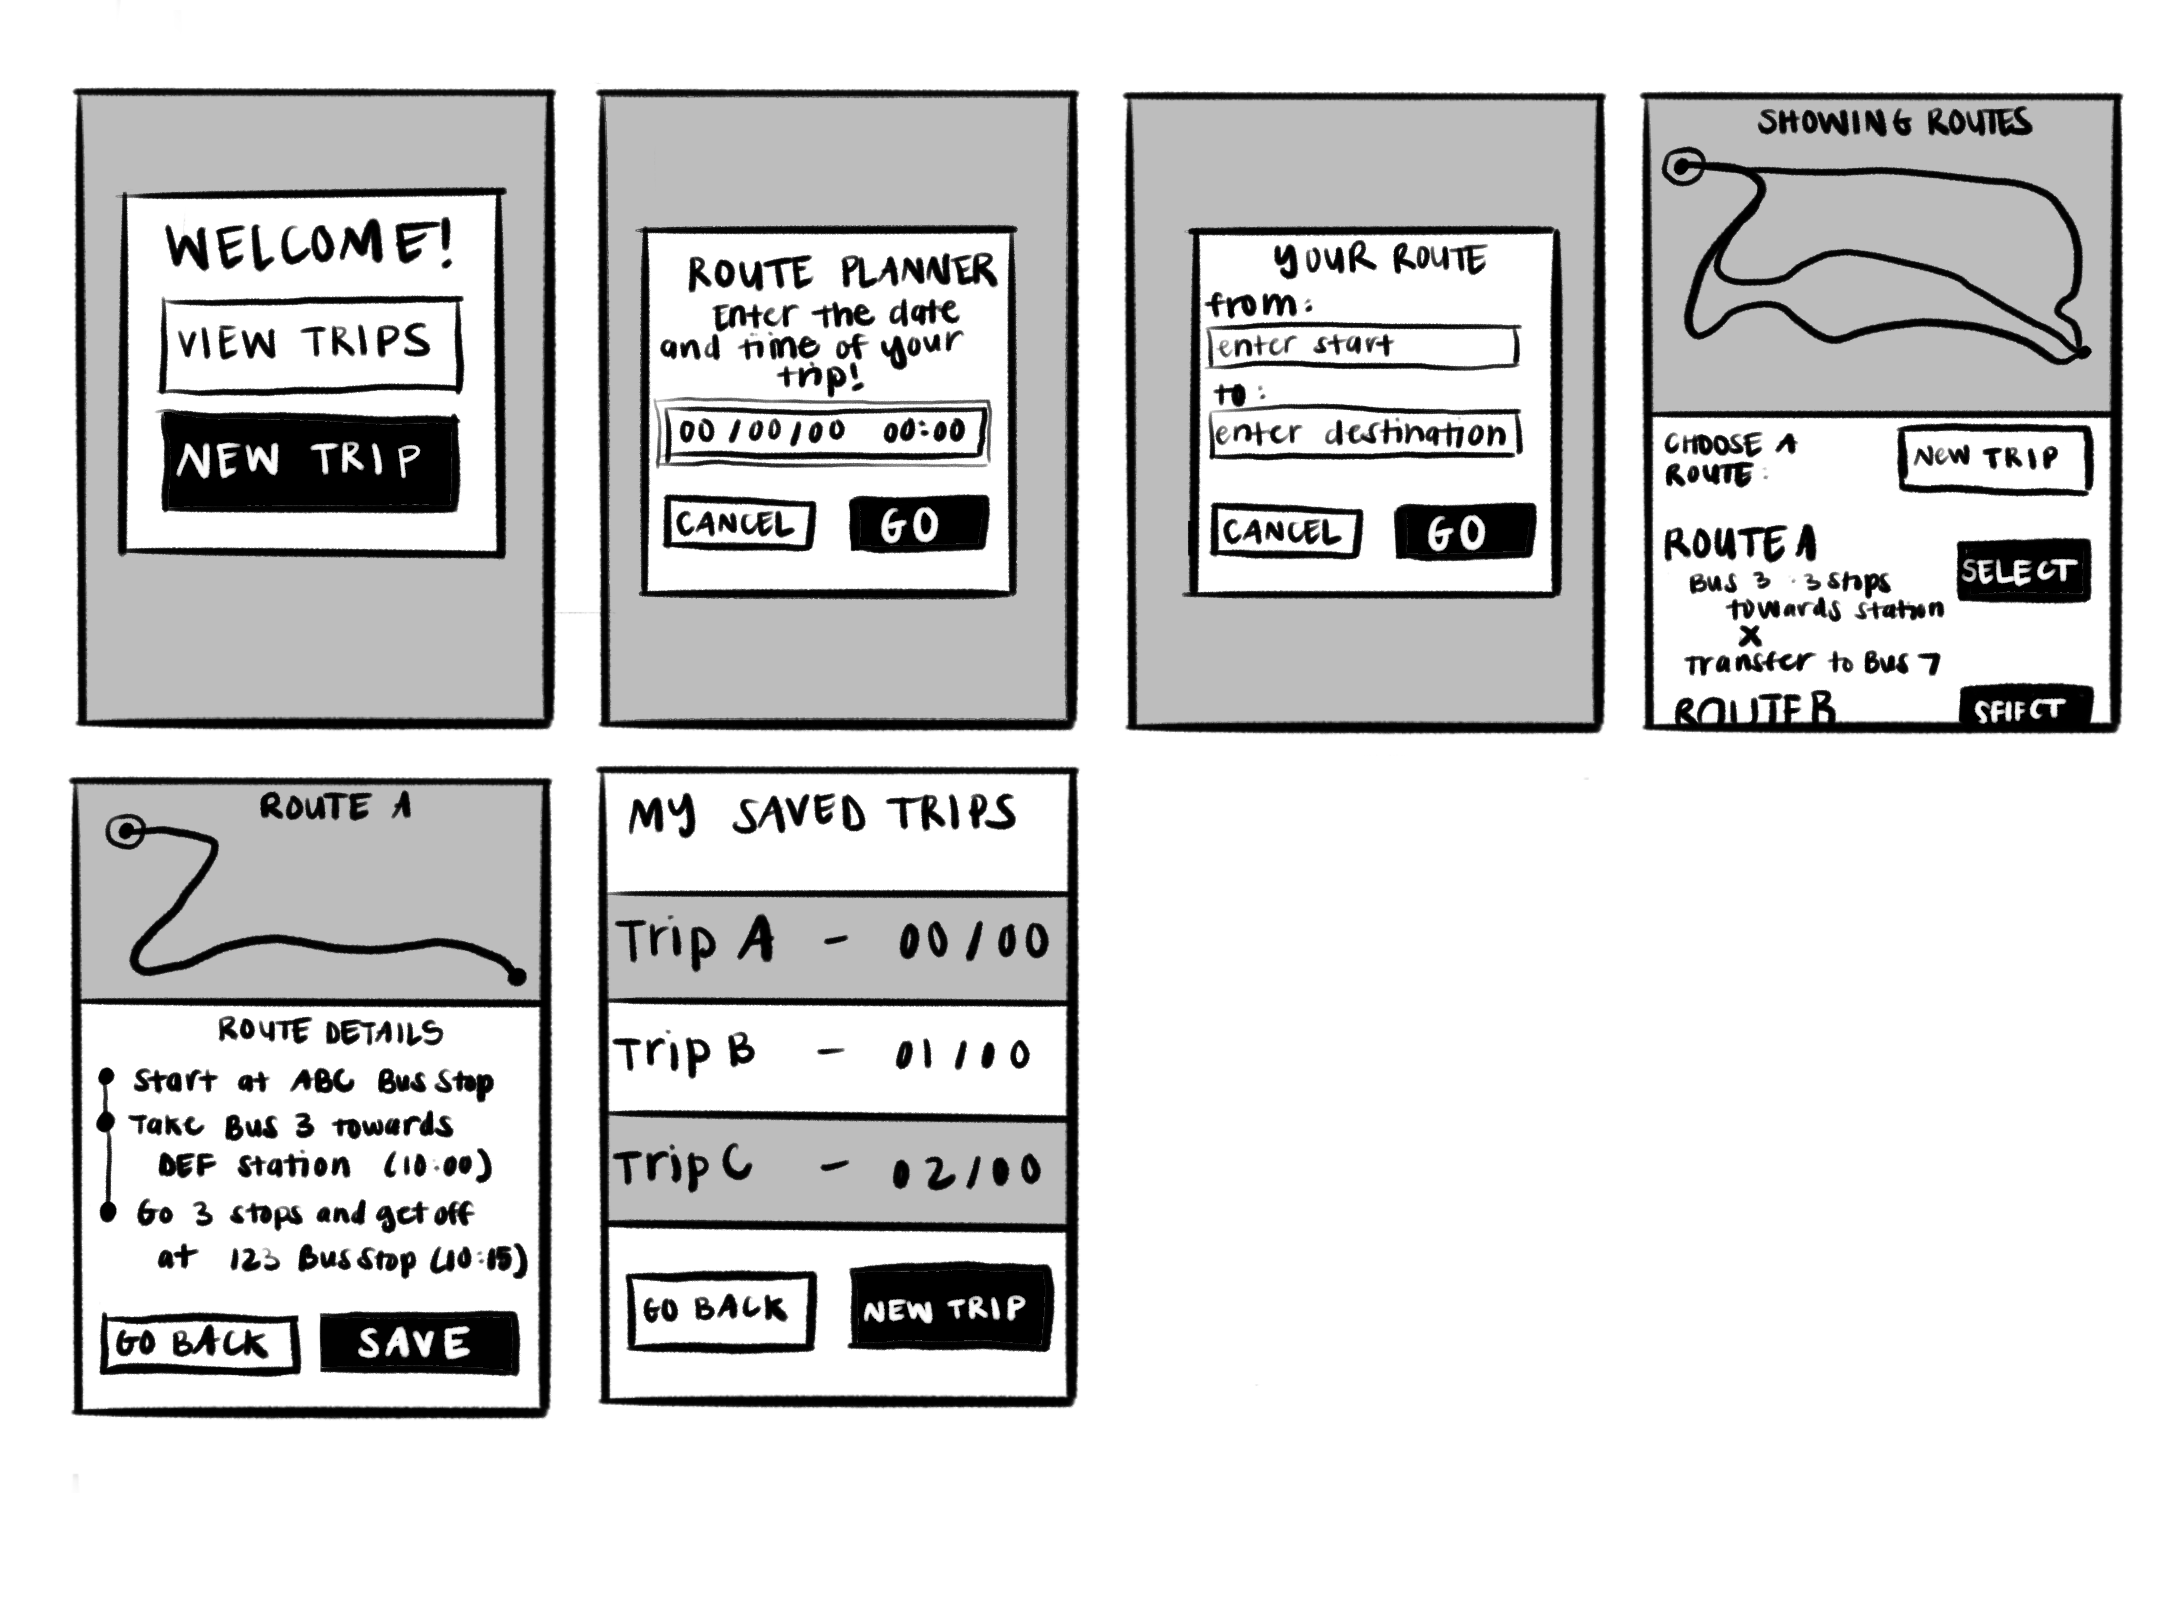 WELCOME!
VIEW TRIPS
NEW TRIP
ROUTE PLANNER
Enter the date
and time of your
trip!
00/00/00 00:00
CANCEL GO
YOUR ROUTE
from:
enter start
to:
enter destination
CANCEL GO
SHOWING ROUTES
CHOOSE A
ROUTE:
NEW TRIP
ROUTE A
SELECT
Bus 3 · 3 stops
towards station
X
Transfer to Bus 7
ROUTE B SELECT
ROUTE A
ROUTE DETAILS
Start at ABC Bus Stop
Take Bus 3 towards
DEF Station (10:00)
Go 3 stops and get off
at 123 Bus Stop (10:15)
GO BACK SAVE
MY SAVED TRIPS
Trip A - 00/00
Trip B - 01/00
Trip C - 02/00
GO BACK NEW TRIP